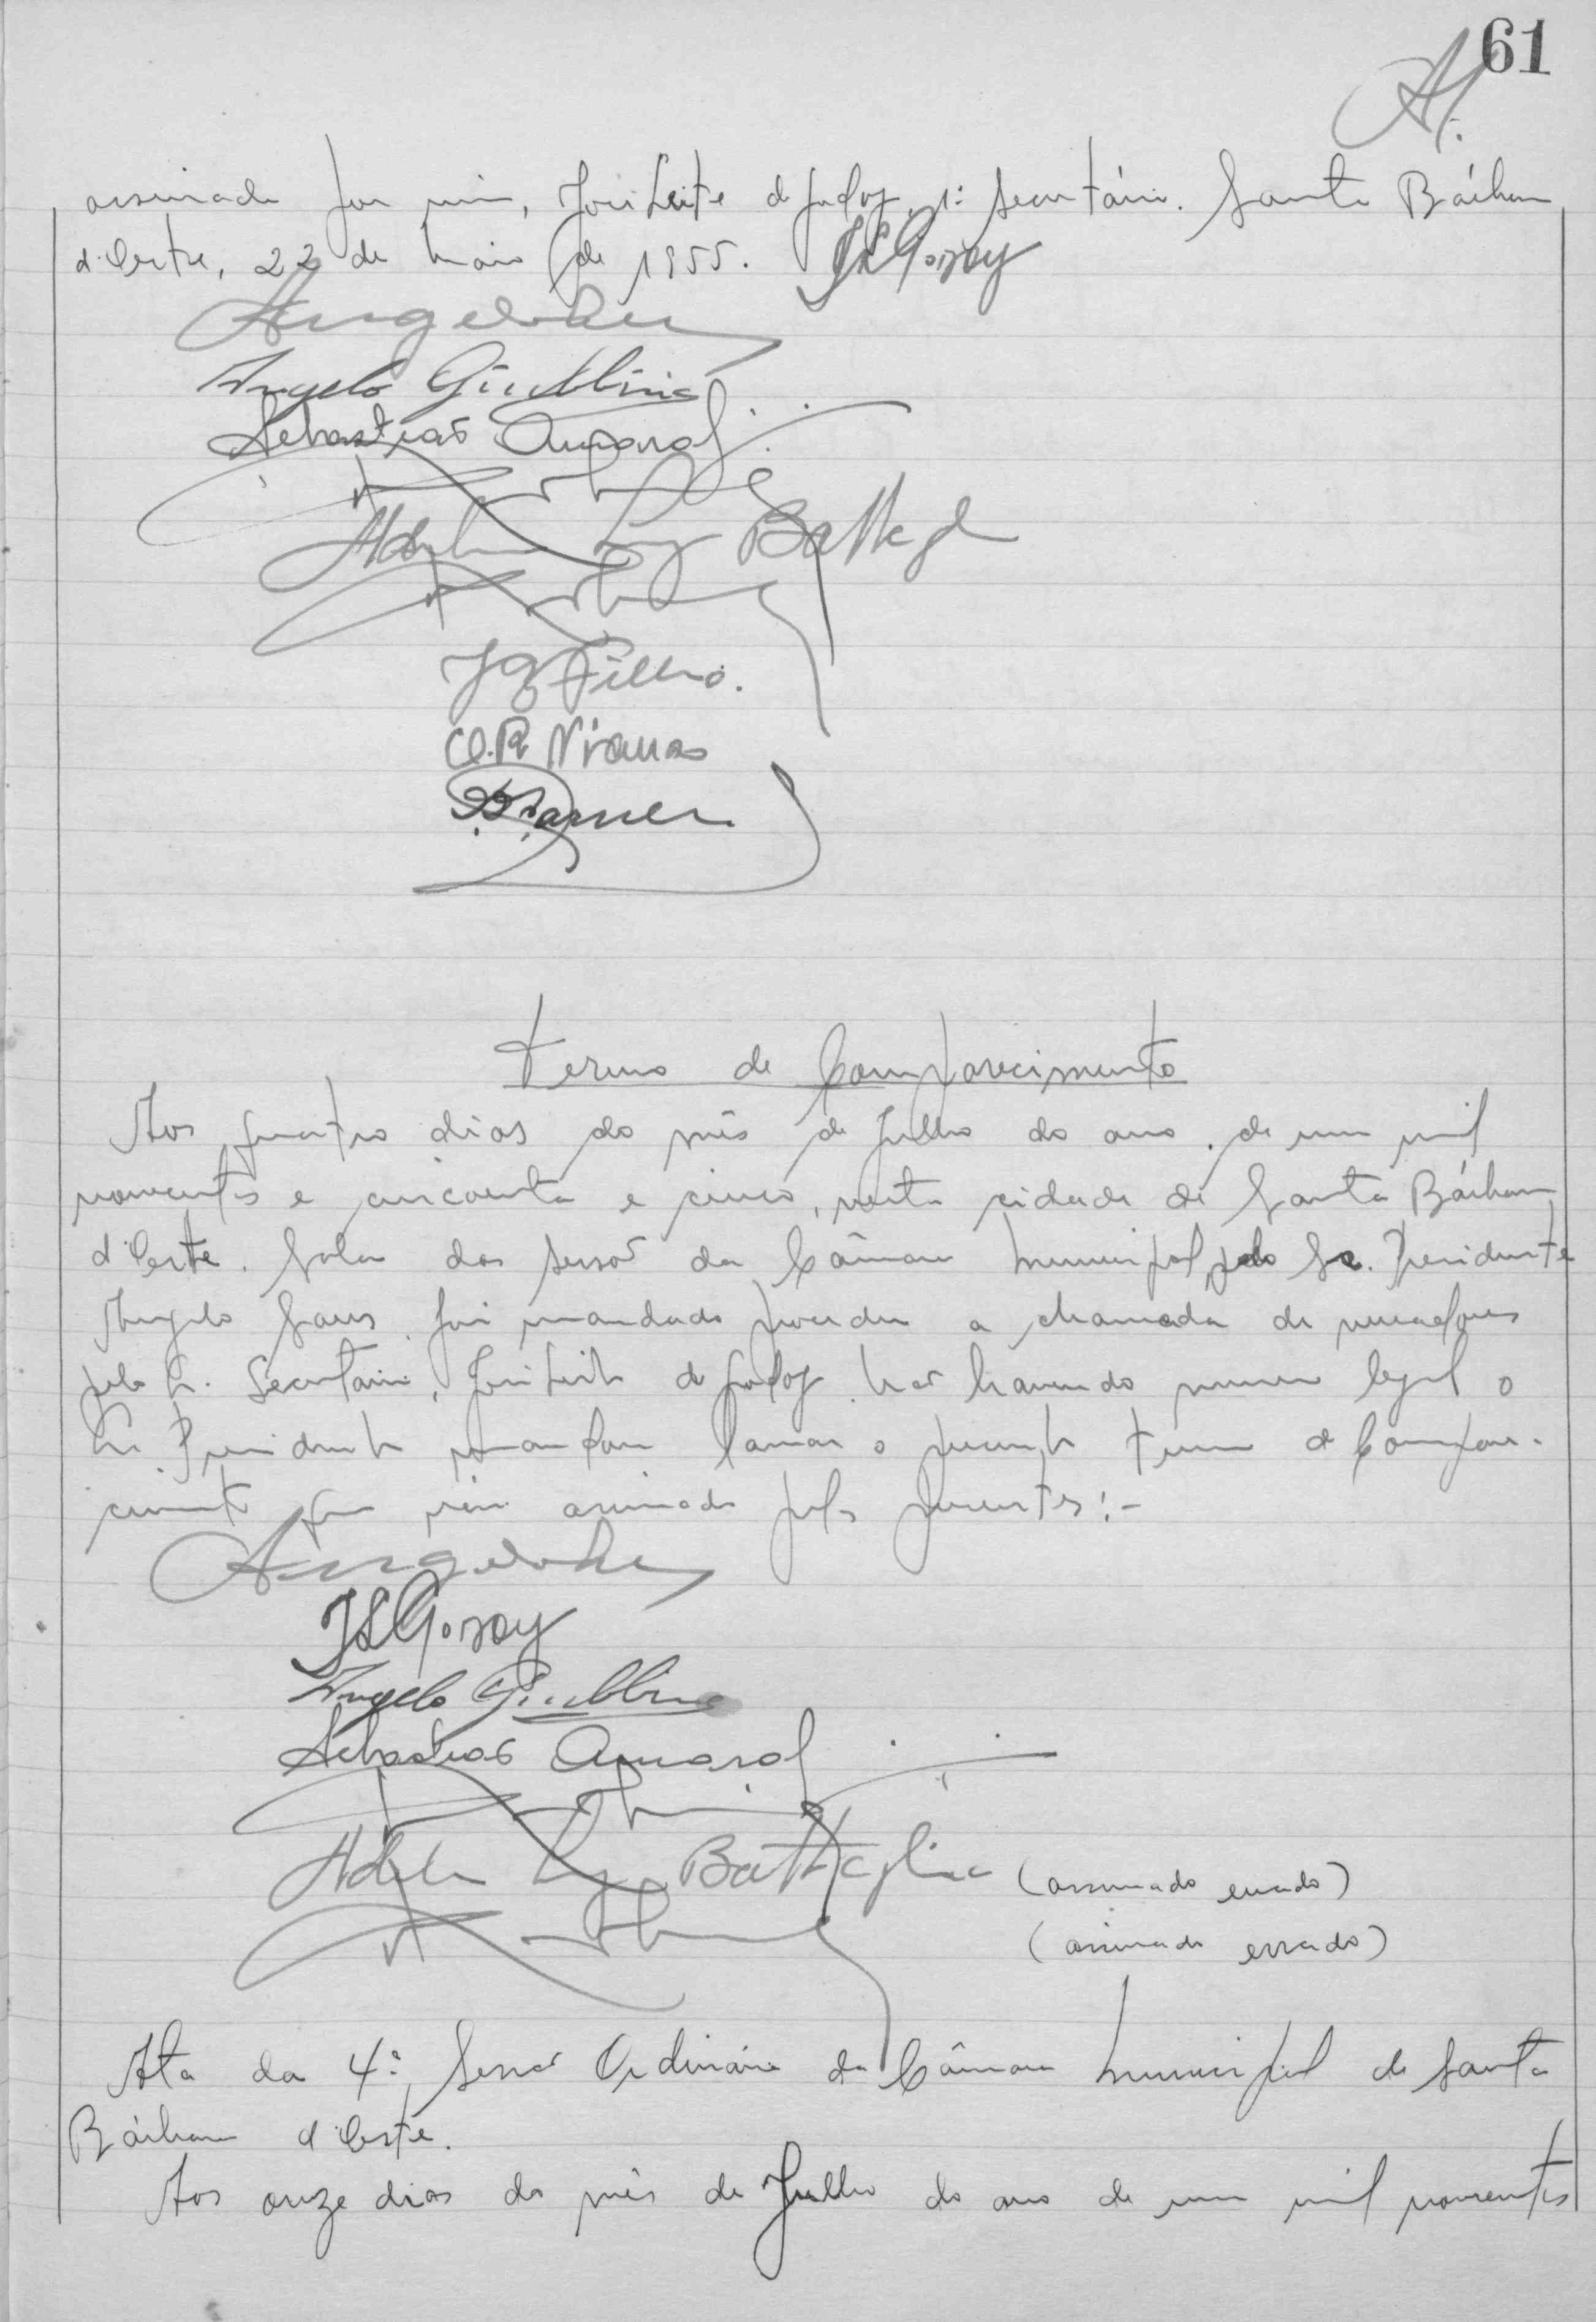 61
assinada por mim, José Leite de Godoy, 1º Secretário. Santa Bárbara
d'Oeste, 22 de maio de 1955. JLGodoy
Angelo
Angelo Giubbina
Sebastião Amaral
Battagl
J Filho.
Viana
Termo de Comparecimento
Aos quatro dias do mês de Julho do ano de um mil
novecentos e cincoenta e cinco, nesta cidade de Santa Bárbara
d'Oeste. Sala das sessões da Câmara Municipal, pelo Sr. Presidente
Angelo Sans foi mandado proceder a chamada de vereadores
pelo Sr. Secretário, José Leite de Godoy. Não havendo numero legal o
Sr. Presidente mandou lavrar o presente termo de Compare-
cimento que vai assinado pelos presentes:-
Angelo
JLGodoy
Angelo Giubbina
Sebastião Amaral
Battaglia (assinado errado)
(assinado errado)
Ata da 4ª Sessão Ordinária da Câmara Municipal de Santa
Bárbara d'Oeste.
Aos onze dias do mês de Julho do ano de um mil novecentos